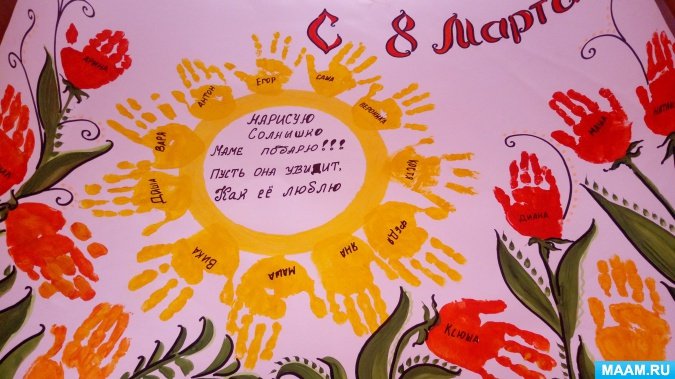 С 8 Марта
НАРИСУЮ
СОЛНЫШКО
МАМЕ ПОДАРЮ!!!
ПУСТЬ ОНА УВИДИТ,
КАК ЕЁ ЛЮБЛЮ
САША
ЕГОР
АНТОН
ВАРЯ
ДАША
ВИКА
МАША
ЯНА
ФЕДЯ
ВЕРОНИКА
ДИАНА
КСЮША
MAAM.RU